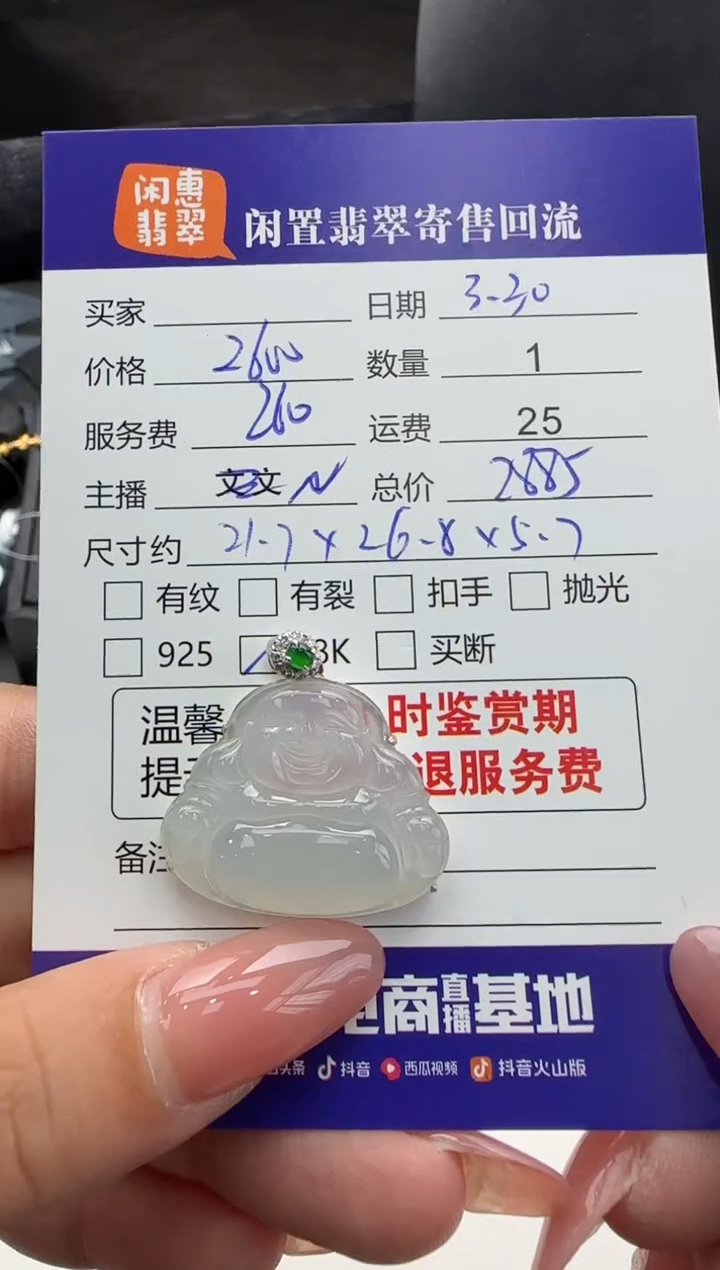 闲惠
翡翠
闲置翡翠寄售回流
买家 日期 3-30
价格 2600 数量 1
服务费 260 运费 25
主播 文文 总价 2885
尺寸约 21.7×26.8×5.7
有纹 有裂 扣手 抛光
925 8K 买断
温馨 时鉴赏期
提 退服务费
备注
电商直播基地
头条 抖音 西瓜视频 抖音火山版